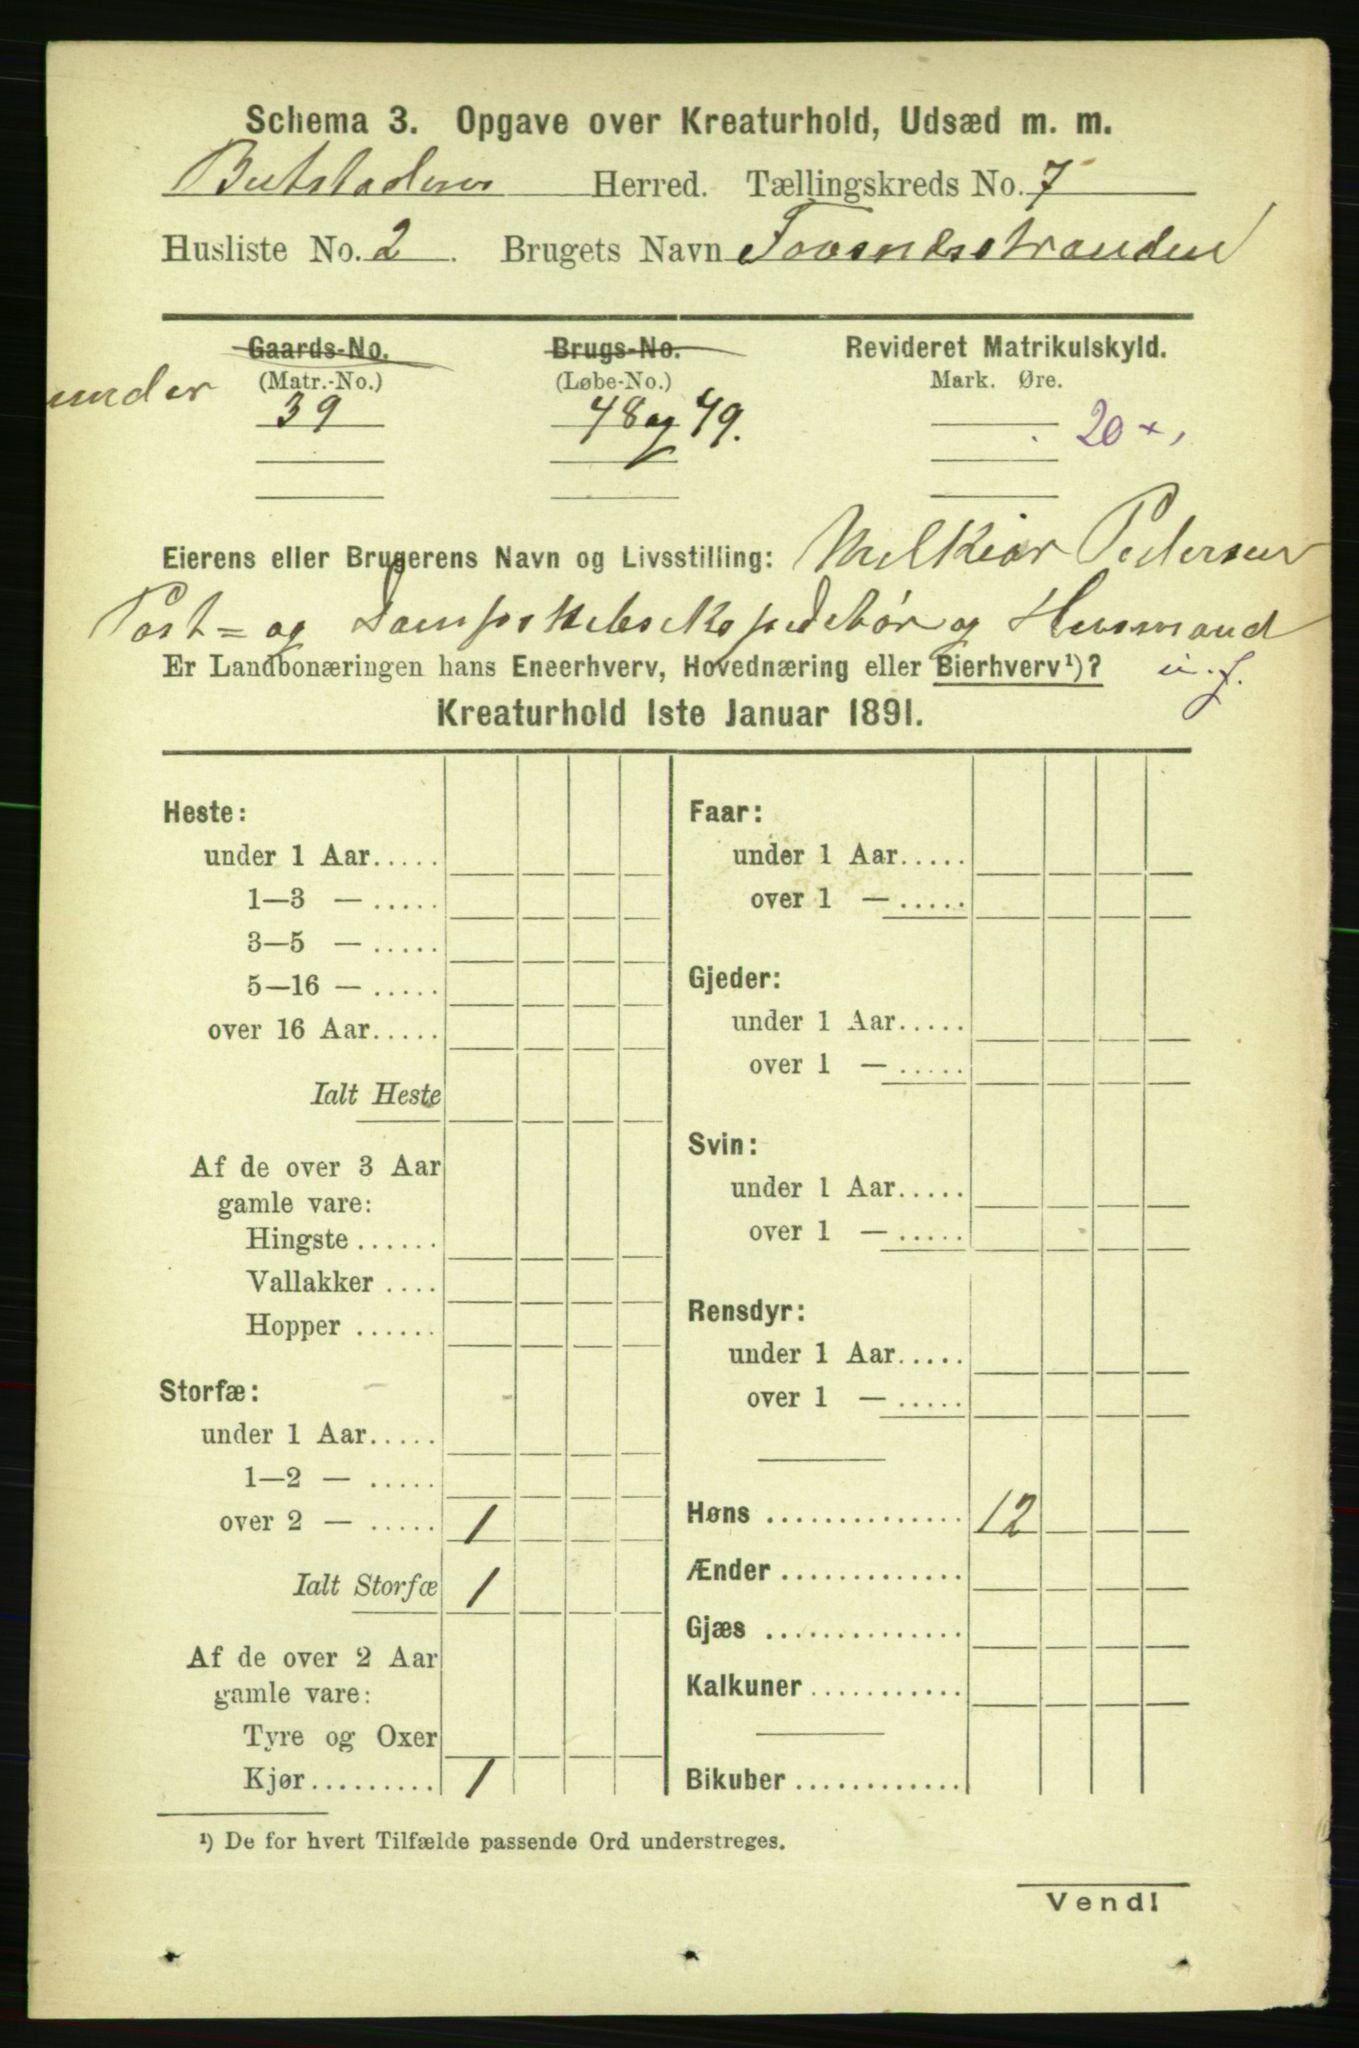 Schema 3. Opgave over Kreaturhold, Udsæd m. m.
Herred. Tællingskreds No. 7
Husliste No. 2. Brugets Navn
Gaards-No. Brugs-No. Revideret Matrikulskyld.
(Matr.-No.) (Løbe-No.) Mark. Øre.
under 39 48 og 49. 20
Eierens eller Brugerens Navn og Livsstilling: Melkior Pedersen
Post- og og Husmand
Er Landbonæringen hans Eneerhverv, Hovednæring eller Bierhverv¹)?
Kreaturhold 1ste Januar 1891.
Heste:
under 1 Aar.....
1—3 — .....
3—5 — .....
5—16 — .....
over 16 Aar.....
Ialt Heste
Af de over 3 Aar
gamle vare:
Hingste ......
Vallakker ....
Hopper ......
Storfæ:
under 1 Aar.....
1—2 — .....
over 2 — ..... 1
Ialt Storfæ 1
Af de over 2 Aar
gamle vare:
Tyre og Oxer
Kjør......... 1
Faar:
under 1 Aar.....
over 1 — .....
Gjeder:
under 1 Aar.....
over 1 — .....
Svin:
under 1 Aar.....
over 1 — .....
Rensdyr:
under 1 Aar.....
over 1 — .....
Høns .............. 12
Ænder .............
Gjæs ..............
Kalkuner ...........
Bikuber ............
¹) De for hvert Tilfælde passende Ord understreges.
Vend!